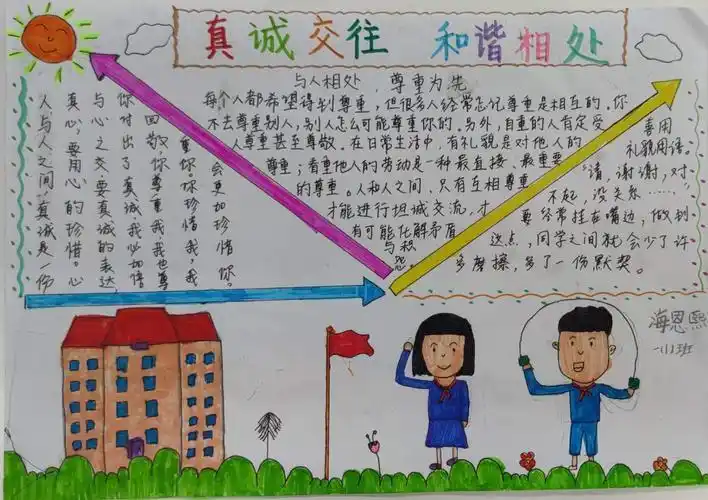 真诚交往 和谐相处
人与人之间,真诚是一份
真心,要用心的珍惜。心
与心之交要真诚的表达,
你付出了真诚我必加倍
回敬你尊重我我也尊
重你,你珍惜我,我
会更加珍惜你。
与人相处,尊重为先
每个人都希望得到尊重,但很多人经常忘记尊重是相互的。你
不去尊重别人,别人怎么可能尊重你的。另外,自重的人肯定受
人尊重甚至尊敬。在日常生活中,有礼貌是对他人的
尊重;看重他人的劳动是一种最直接、最重要
的尊重。人和人之间,只有互相尊重
才能进行坦诚交流,才
有可能化解矛盾
与积
怨。
喜用
礼貌用语。
"请,谢谢,对
不起,没关系……,
要经常挂在嘴边,做到
这点,同学之间就会少了许
多摩擦,多了一份默契。
海恩熙
一(1)班